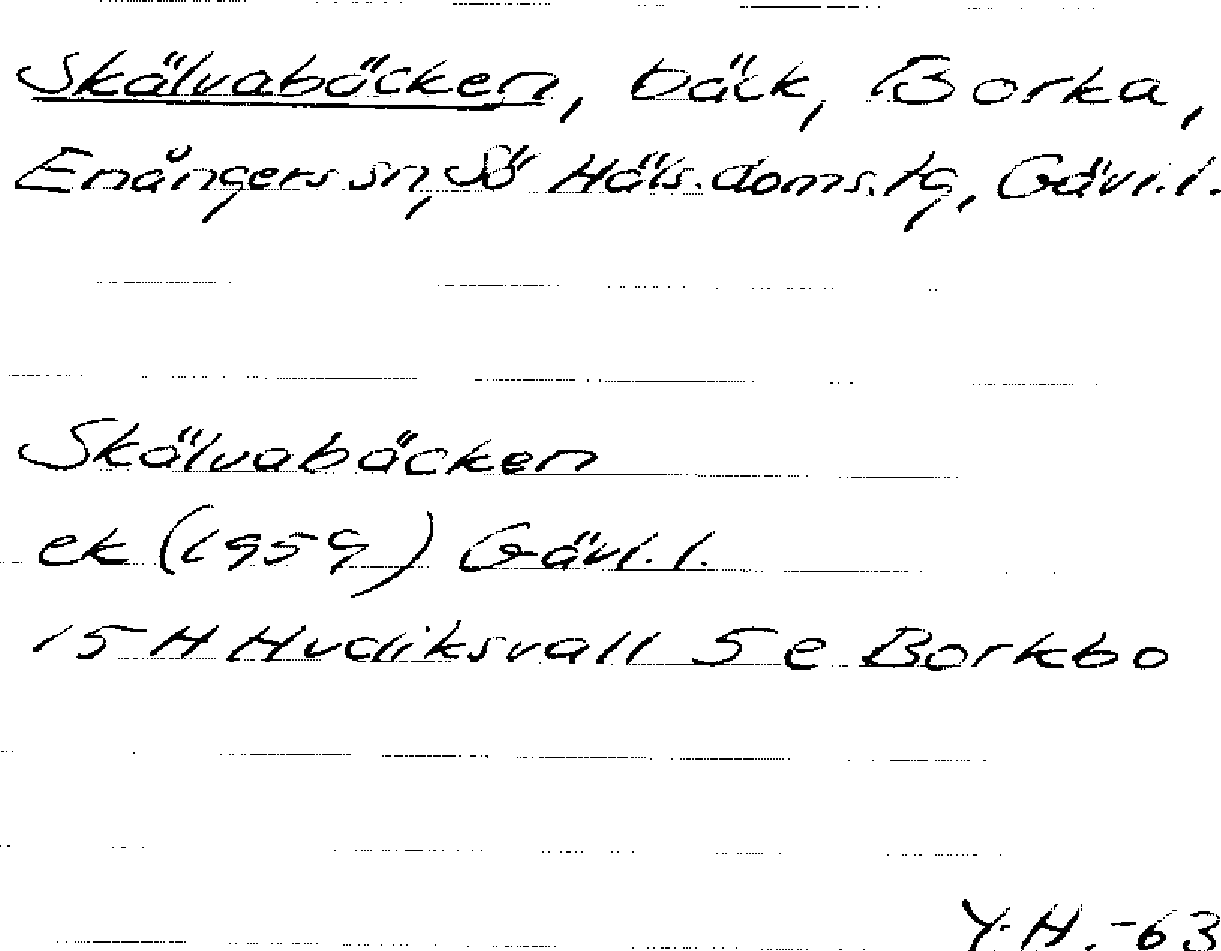 Skälvabäcken, bäck, Borka,
Enångers sn, Sö Häls. doms.tg, Gävl.l.
Skälvabäcken
ek (1959) Gävl.l.
15 H Hudiksvall 5 e Borkbo
Y.H.-63